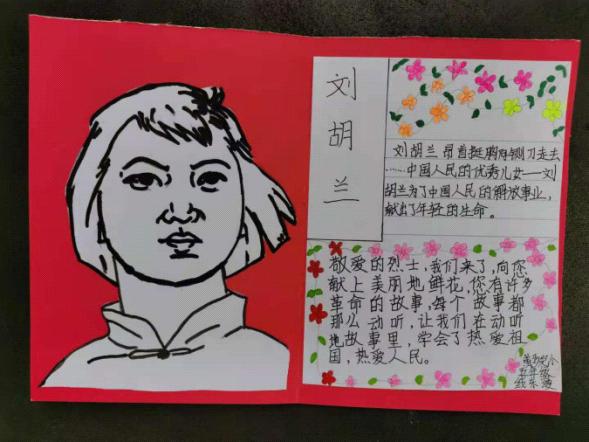 刘
胡
兰
刘胡兰昂首挺胸向铡刀走去
……中国人民的优秀儿女——刘
胡兰为了中国人民的解放事业,
献出了年轻的生命。
敬爱的烈士,我们来了,向您
献上美丽地鲜花,您有许多
革命的故事,每个故事都
那么动听,让我们在动听
地故事里,学会了热爱祖
国,热爱人民。
五年级